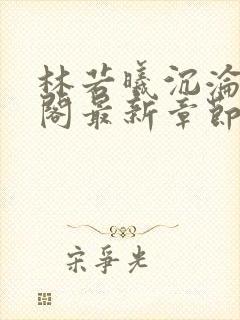 林若曦沉沦
阁最新章节
宋爭光